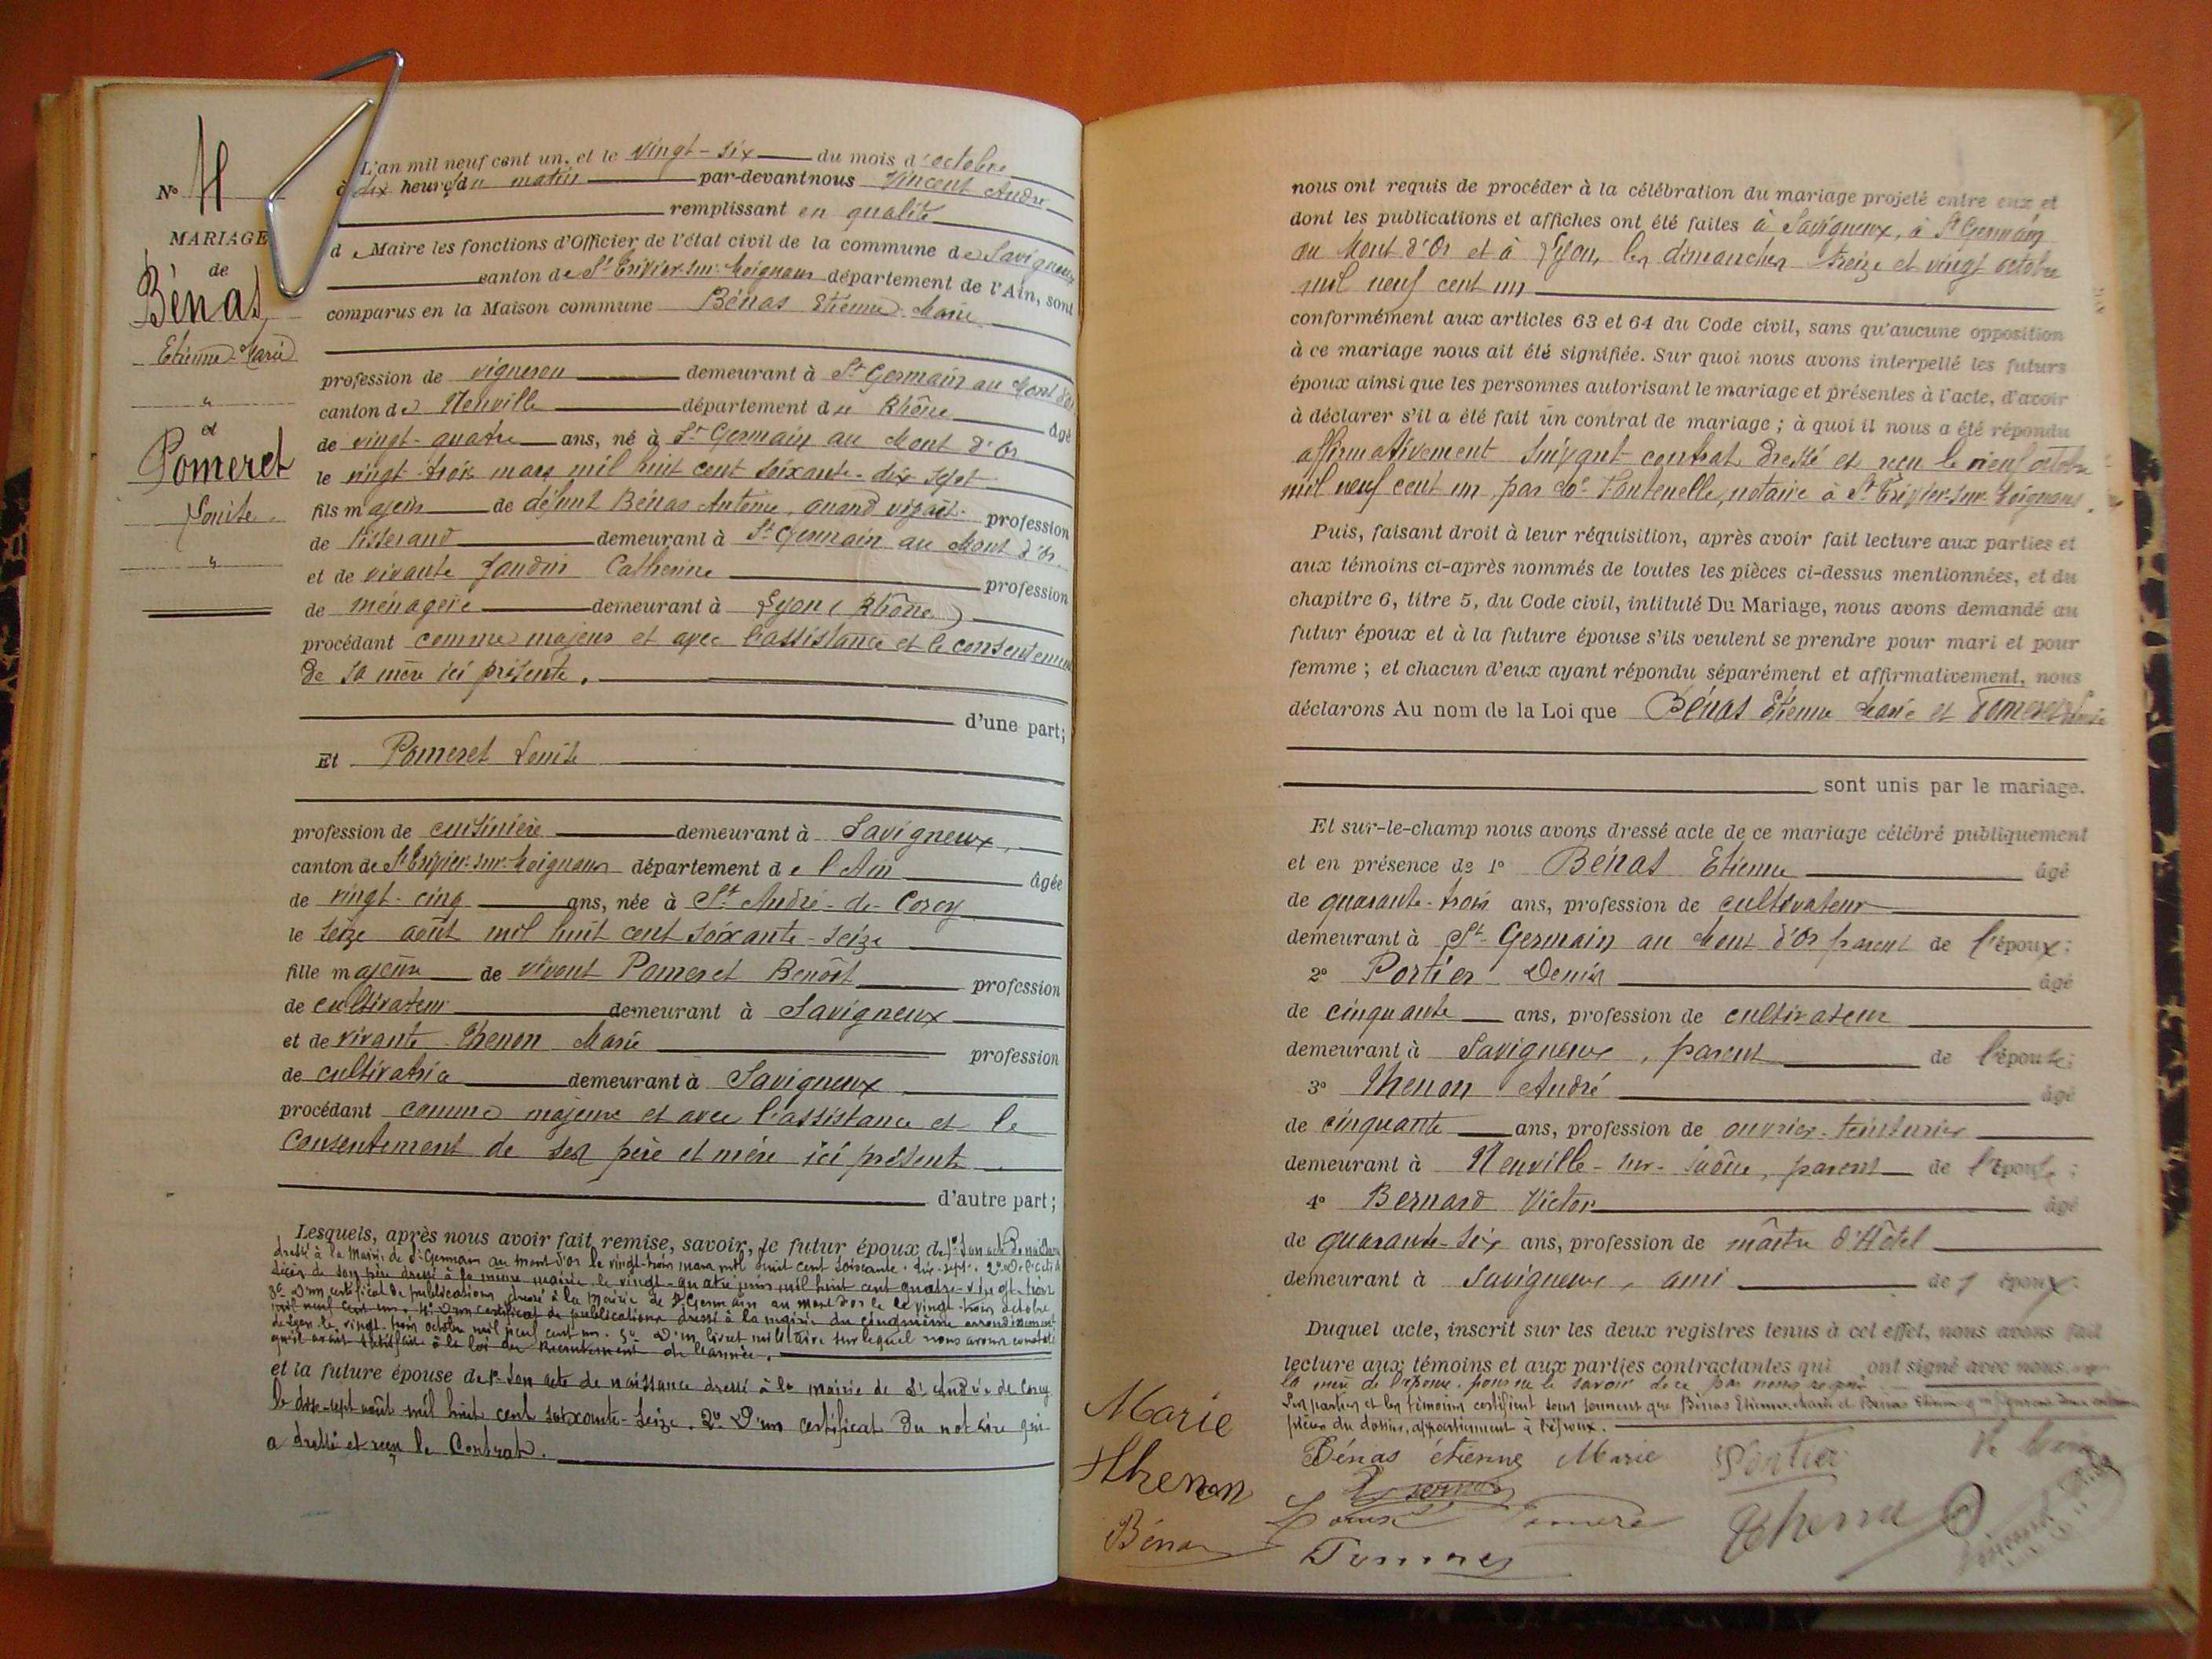 N° 4
MARIAGE
de
Bénas
Etienne-Marie
"
et
Pomeret
Louise
"
L'an mil neuf cent un, et le vingt-six du mois d'octobre
à dix heures du matin par-devant nous Vincent André
remplissant en qualité
de Maire les fonctions d'Officier de l'état civil de la commune de Savigneux
canton de St Trivier-sur-Moignans département de l'Ain, sont
comparus en la Maison commune Bénas Etienne Marie
profession de vigneron demeurant à St Germain au Mont d'Or
canton de Neuville département du Rhône âgé
de vingt-quatre ans, né à St Germain au Mont d'Or
le vingt-trois mars mil huit cent soixante-dix-sept
fils majeur de défunt Bénas Antoine, quand vivait profession
de tisserand demeurant à St Germain au Mont d'Or
et de vivante Jandin Catherine profession
de ménagère demeurant à Lyon (Rhône)
procédant comme majeur et avec l'assistance et le consentement
de sa mère ici présente.
d'une part;
Et Pomeret Louise
profession de cuisinière demeurant à Savigneux
canton de St Trivier-sur-Moignans département de l'Ain âgée
de vingt-cinq ans, née à St André-de-Corcy
le seize août mil huit cent soixante-seize
fille majeure de vivant Pomeret Benoît profession
de cultivateur demeurant à Savigneux
et de vivante Thenon Marie profession
de cultivatrice demeurant à Savigneux
procédant comme majeure et avec l'assistance et le
consentement de ses père et mère ici présents
d'autre part;
Lesquels, après nous avoir fait remise, savoir, le futur époux de 1° Son acte de naissance
dressé à la Mairie de St Germain au Mont d'Or le vingt-trois mars mil huit cent soixante-dix-sept. 2° De l'acte de
décès de son père dressé à la même mairie le vingt-quatre juin mil huit cent quatre-vingt-trois
3° D'un certificat de publications dressé à la Mairie de St Germain au Mont d'Or le vingt-trois octobre
mil neuf cent un. 4° D'un certificat de publications dressé à la mairie du cinquième arrondissement
de Lyon le vingt-trois octobre mil neuf cent un. 5° D'un livret militaire sur lequel nous avons constaté
qu'il avait satisfait à la loi du Recrutement de l'armée.
et la future épouse de 1° Son acte de naissance dressé à la mairie de St André de Corcy
le dix-sept août mil huit cent soixante-seize. 2° D'un certificat du notaire qui
a dressé et reçu le Contrat.
nous ont requis de procéder à la célébration du mariage projeté entre eux et
dont les publications et affiches ont été faites à Savigneux, à St Germain
au Mont d'Or et à Lyon, les dimanches treize et vingt octobre
mil neuf cent un
conformément aux articles 63 et 64 du Code civil, sans qu'aucune opposition
à ce mariage nous ait été signifiée. Sur quoi nous avons interpellé les futurs
époux ainsi que les personnes autorisant le mariage et présentes à l'acte, d'avoir
à déclarer s'il a été fait un contrat de mariage; à quoi il nous a été répondu
affirmativement suivant contrat dressé et reçu le neuf octobre
mil neuf cent un, par Me Fontenelle, notaire à St Trivier-sur-Moignans.
Puis, faisant droit à leur réquisition, après avoir fait lecture aux parties et
aux témoins ci-après nommés de toutes les pièces ci-dessus mentionnées, et du
chapitre 6, titre 5, du Code civil, intitulé Du Mariage, nous avons demandé au
futur époux et à la future épouse s'ils veulent se prendre pour mari et pour
femme; et chacun d'eux ayant répondu séparément et affirmativement, nous
déclarons Au nom de la Loi que Bénas Etienne Marie et Pomeret Louise
sont unis par le mariage.
Et sur-le-champ nous avons dressé acte de ce mariage célébré publiquement
et en présence de 1° Bénas Etienne âgé
de quarante-trois ans, profession de cultivateur
demeurant à St Germain au Mont d'Or parent de l'époux;
2° Portier Denis âgé
de cinquante ans, profession de cultivateur
demeurant à Savigneux, parent de l'épouse;
3° Thenon André âgé
de cinquante ans, profession de ouvrier-teinturier
demeurant à Neuville-sur-Saône, parent de l'épouse;
4° Bernard Victor âgé
de quarante-six ans, profession de maître d'Hôtel
demeurant à Savigneux, ami de l'époux;
Duquel acte, inscrit sur les deux registres tenus à cet effet, nous avons fait
lecture aux témoins et aux parties contractantes qui ont signé avec nous
la mère de l'époux, pour ne le savoir de ce par nous requis
Les parties et les témoins certifient sous serment que Bénas Etienne Marie et Bénas Etienne
pièces du dossier, appartiennent à l'époux.
Marie
Thenon
Bénas
Bénas étienne Marie
Portier
Louise Pomeret
Thenon
Pomeret